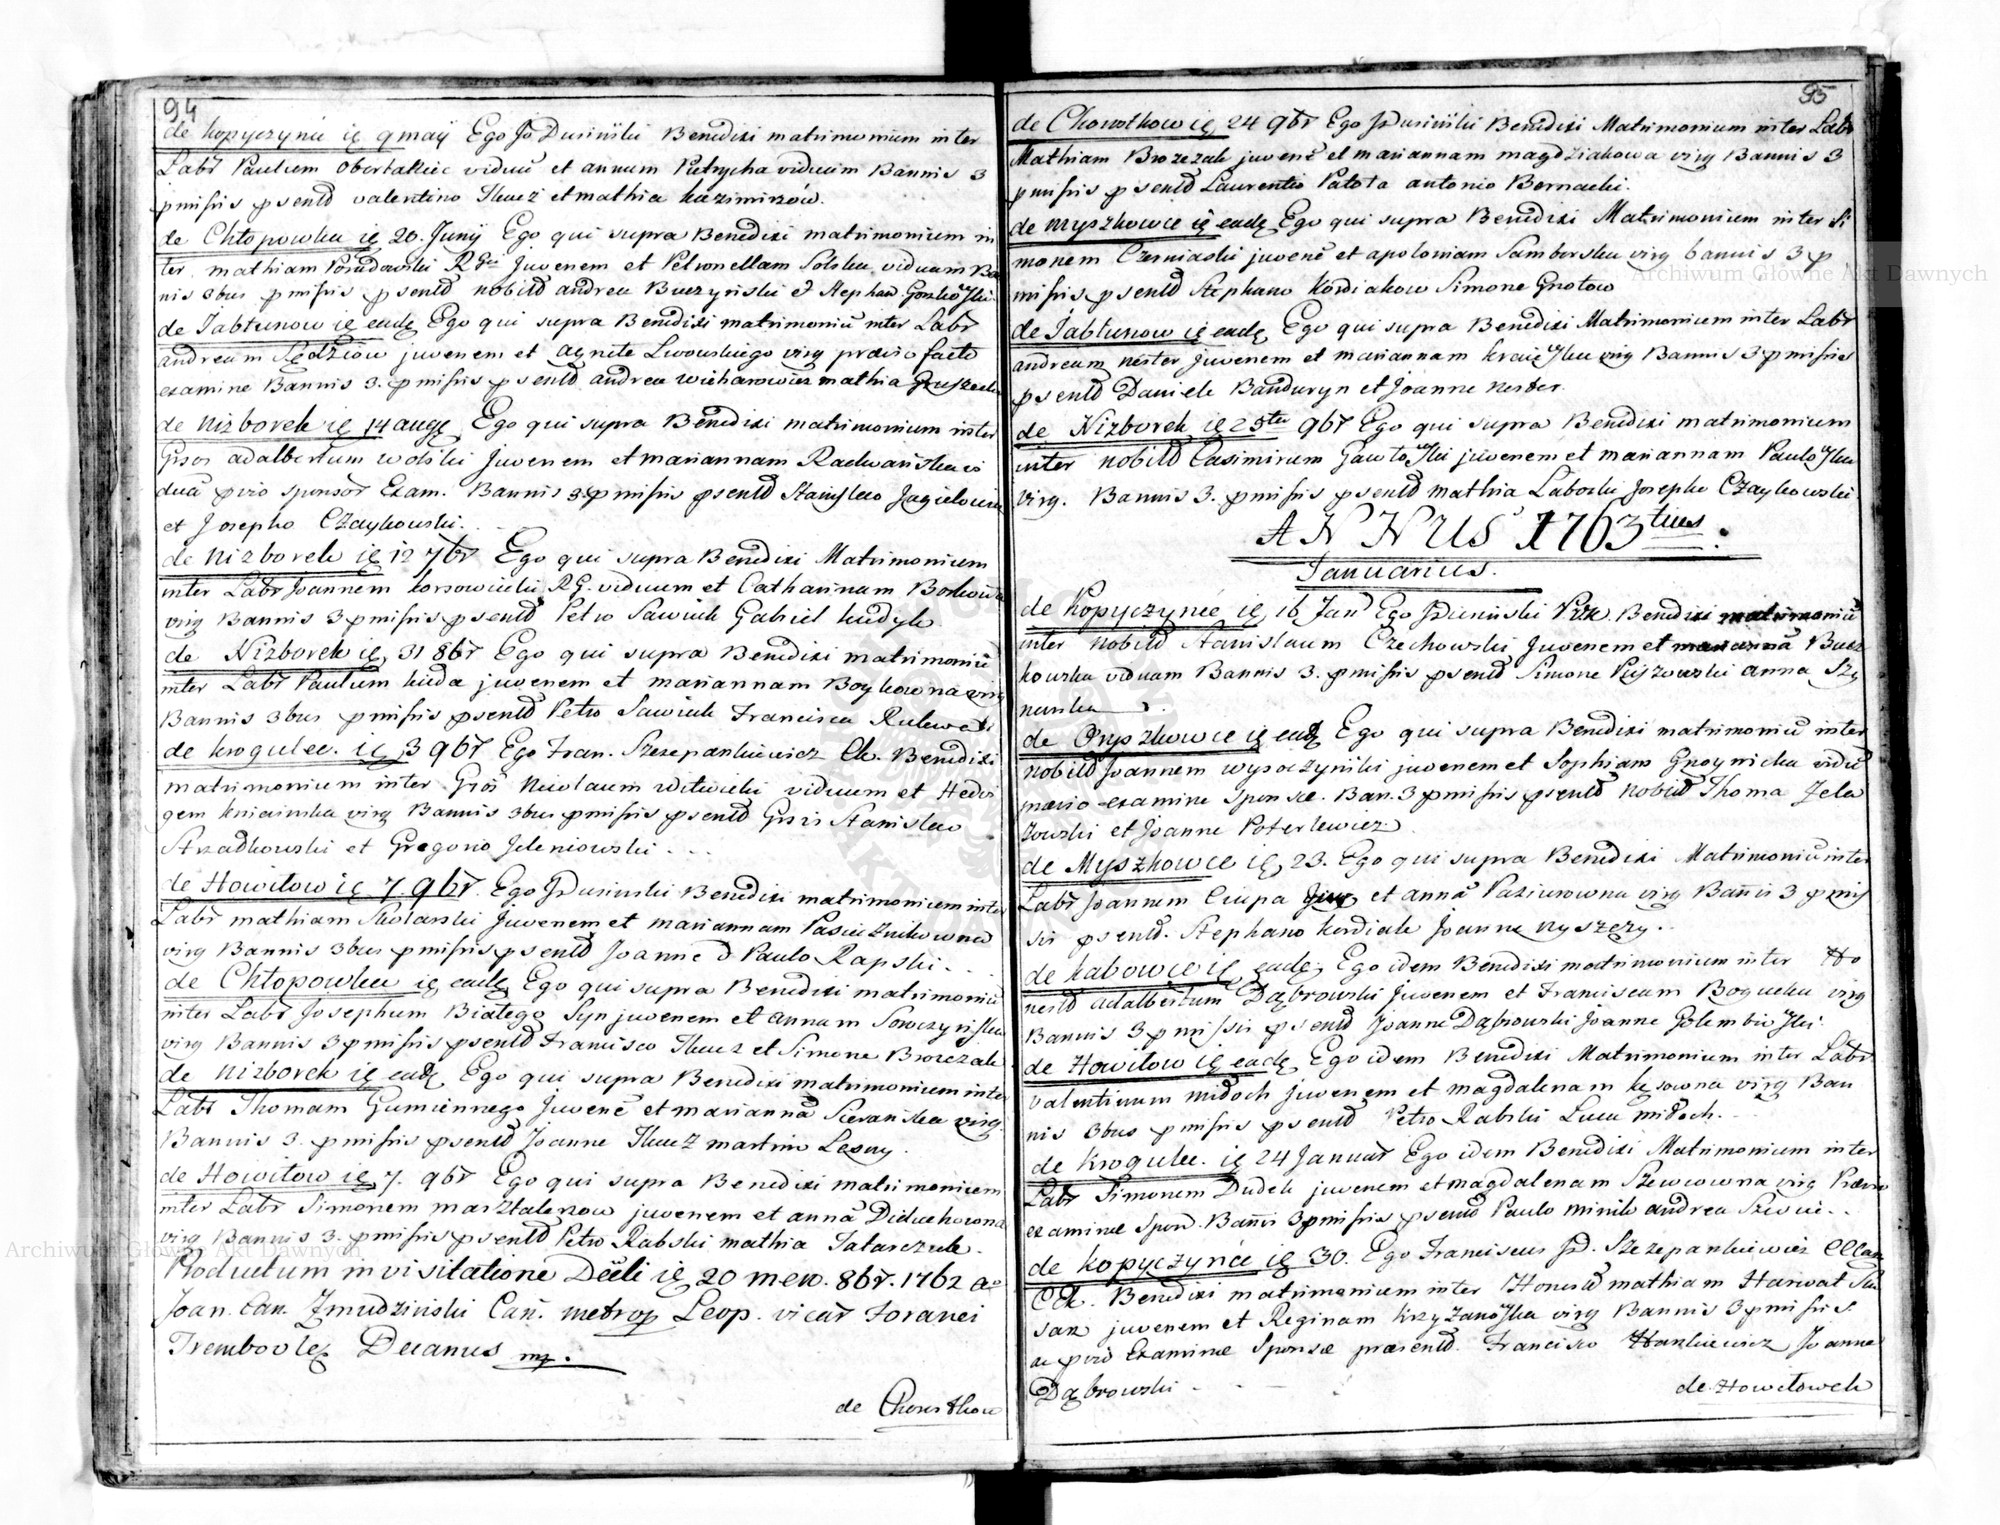 94
de kopyczynie ię 9 maij Ego Jo Dusiński Benedixi matrimonium inter
Labr Paulum obertaktiec viduū et annam Petrycha viduam Bannis 3
pmissis psentb valentino Tkacz et mathia kazimirzów.
de Chłopowka ię 20. Junij Ego qui supra Benedixi matrimonium in
ter mathiam Posudowski Juvenem et Petronellam Solska viduam Ba
nis 3bus pmissis psentb nobilb andrea Buczyński et Stephan
de Jabłunow ię eadę Ego qui supra Benedixi matrimoniū inter Labr
andream Sędziow juvenem et agnete Lwowskiego virg prævio facto
examine Bannis 3. pmissis psentb andrea wicharowicz mathia
de Nizborek ię 14 augę Ego qui supra Benedixi matrimonium inter
Gsos adalbertum wolski juvenem et mariannam Radwańska vi
duā pvio sponsor Exam. Bannis 3 pmissis psentb Stanislao
et Josepho Czaykowski.
de Nizborek ię 12 7br Ego qui supra Benedixi Matrimonium
inter Labr Joannem RG. viduum et Catharinam
virg Bannis 3 pmissis psentb Petro Sawiuk Gabriel kudyk.
de Nizborek ię 31 8br Ego qui supra Benedixi matrimoniū
inter Labr Paulum kuda juvenem et mariannam Boykowna virg
Bannis 3bus pmissis psentb Petro Sawiuk Francisca
de krogulec. ię 3 9br Ego Fran. Szczepankiewicz Ck. Benedixi
matrimonium inter Gsos Nicolaum witwicki viduum et Hedvi
gem virg Bannis 3bus pmissis psentb Gsis Stanislao
Strzadkowski et Gregorio Jeleniowski.
de Howiłow ię 7. 9br. Ego JDusinski Benedixi matrimonium inter
Labr mathiam Skolarski juvenem et mariannam
virg Bannis 3bus pmissis psentb Joanne d Paulo Rapski.
de Chłopowka ię eadę Ego qui supra Benedixi matrimoniū
inter Labr Josephum Białego Syn juvenem et annam
virg Bannis 3 pmissis psentb Francisco Tkacz et Simone Brozczak
de nizborek ię eadę Ego qui supra Benedixi matrimonium inter
Labr Thomam Gumiennego juvenē et mariannā virg.
Bannis 3. pmissis psentb Joanne Tkacz martino Lesny.
de Howiłow ię 7. 9br Ego qui supra Benedixi matrimonium
inter Labr Simonem marsztalerzow juvenem et annā Diduchowna
virg Bannis 3. pmissis psentb Petro Rabski mathia Tatarczuk.
Productum in visitatione Dēcli ię 20 men. 8br. 1762 a
Joan. Can. Zmudziński Can. metrop Leop. vicar Foranei
Trembovlę Decanus mp.
de Chorostkow
95
de Chorostkow ię 24 9br Ego JDusiński Benedixi Matrimonium inter Labr
Mathiam Brozczak juvenē et mariannam magdziakowa virg Bannis 3
pmissis psentb Laurentio Patota antonio Bernacki.
de myszkowce ię eadę Ego qui supra Benedixi Matrimonium inter Si
monem Czerniaski juvenē et apoloniam Samborska virg bannis 3 p
missis psentb Stephano kordiakow Simone Gnotow
de Jabłunow ię eadę Ego qui supra Benedixi Matrimonium inter Labr
andream nester juvenem et mariannam virg Bannis 3 pmissis
psentb Daniele Banduryn et Joanne Nester.
de Nizborek ię 25ta 9br Ego qui supra Benedixi matrimonium
inter nobilb Casimirum juvenem et mariannam
virg. Bannis 3. pmissis psentb mathia Laboski Josepho Czaykowski
ANNUS 1763tius.
Januarius.
de Kopyczynce ię 16 Jan Ego JDusiński Benedixi matrimoniū
inter nobilb Stanislaum Czechowski juvenem et mariannā Bucz
kowska viduam Bannis 3. pmissis psentb Simone anna Szy
manska
de Oryszkowce ię eadę Ego qui supra Benedixi matrimoniū inter
nobilb Joannem wysoczyński juvenem et Sophiam Gnoynicka viduā
prævio examine Sponsæ. Ban. 3 pmissis psentb Nobilb Thoma Zela
zowski et Joanne Poterlewicz.
de Myszkowce ię 23. Ego qui supra Benedixi Matrimoniū inter
Labr Joannem Ciupa juv et annā Paziurowna virg Bañis 3 pmis
sis psentb. Stephano kordiak Joanne
de kabowce ię eadę Ego idem Benedixi matrimonium inter Ho
nestb adalbertum Dąbrowski juvenem et Franciscam Bogucka virg
Bannis 3 pmissis psentb Joanne Dąbrowski Joanne
de Howiłow ię eadę Ego idem Benedixi Matrimonium inter Labr
valentinum midoch juvenem et magdalenam kęsowna virg Ban
nis 3bus pmissis psentb Petro Rabski Luca midoch.
de krogulec. ię 24 Januar Ego idem Benedixi Matrimonium inter
Labr Simonem Dudek juvenem et magdalenam Szewcowna virg Prævio
examine Spons. Bañis 3 pmissis psentb Paulo minik andrea Szewc.
de kopyczynce ię 30. Ego Franciscus Jd. Szczepankiewicz
Cck. Benedixi matrimonium inter Honestb mathiam Harwat
juvenem et Reginam virg Bannis 3 pmissis
ac pvio Examine Sponsæ præsentb. Francisco Joanne
Dąbrowski
de Howiłowek
Archiwum Główne Akt Dawnych
Archiwum Główne Akt Dawnych